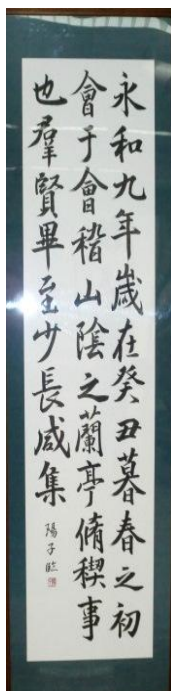 永和九年歳在癸丑暮春之初
會于會稽山陰之蘭亭脩稧事
也羣賢畢至少長咸集
陽子臨